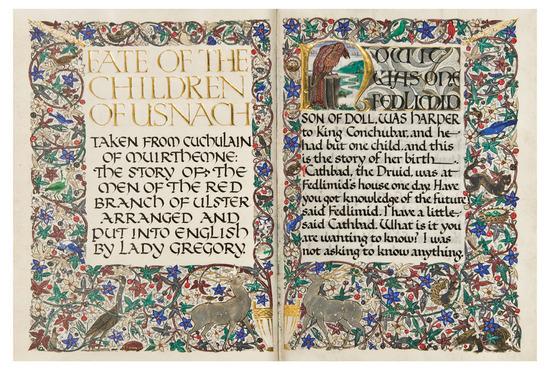 FATE OF THE
CHILDREN
OF USNACH
TAKEN FROM CUCHULAIN
OF MUIRTHEMNE:
THE STORY OF THE
MEN OF THE RED
BRANCH OF ULSTER
ARRANGED AND
PUT INTO ENGLISH
BY LADY GREGORY.
NOW IT
WAS ONE
FEDLIMID
SON OF DOLL, WAS HARPER
to King Conchubar, and he
had but one child, and this
is the story of her birth
Cathbad, the Druid, was at
Fedlimid's house one day. Have
you got knowledge of the future
said Fedlimid. I have a little
said Cathbad. What is it you
are wanting to know? I was
not asking to know anything,